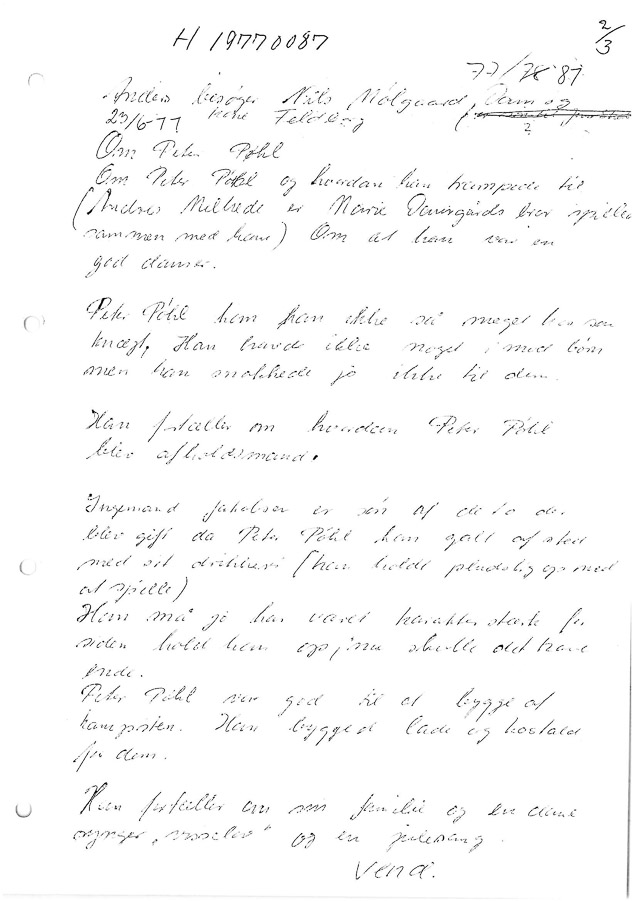 H 19770087
2/3
77/78·87
Anders besøger Nils Mølgaard,
23/6-77 Feldborg
?
Om Peter Pöhl
Om Peter Pöhl og hvordan han trampede til
(Andres Milhede er Marie bror spiller
sammen med ham) Om at han var en
god danser.
Peter Pöhl ham kan ikke så meget han som
knægt. Han havde ikke noget imod børn
men han snakkede jo ikke til dem.
Han fortæller om hvordan Peter Pöhl
blev afholdsmand.
Ingemand Jakobsen er søn af de to der
blev gift da Peter Pöhl kom galt af sted
med sit drikkeri (han holdt pludselig op med
at spille)
Ham må jo har været karakter stærk for
siden hold ham op, nu skulle det have
ende.
Peter Pöhl var god til at bygge af
kampsten. Han bygged lade og kostald
for dem.
Han fortæller om sin familie og en dame
synger " og en julesang.
Vend.